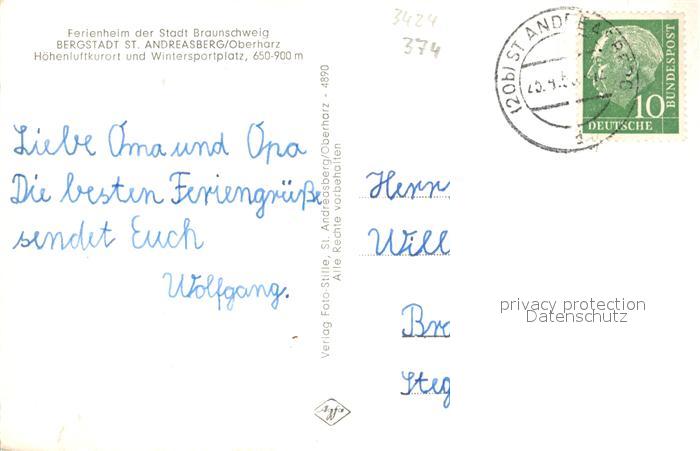 Ferienheim der Stadt Braunschweig
BERGSTADT ST. ANDREASBERG/Oberharz
Höhenluftkurort und Wintersportplatz, 650-900 m
3424
374
(20b) ST ANDREASBERG
DEUTSCHE
BUNDESPOST
10
Liebe Oma und Opa
Die besten Feriengrüße
sendet Euch
Wolfgang.
Verlag Foto-Stille, St. Andreasberg/Oberharz - 4890
Alle Rechte vorbehalten
Herrn
Will
Br
Steg
privacy protection
Datenschutz